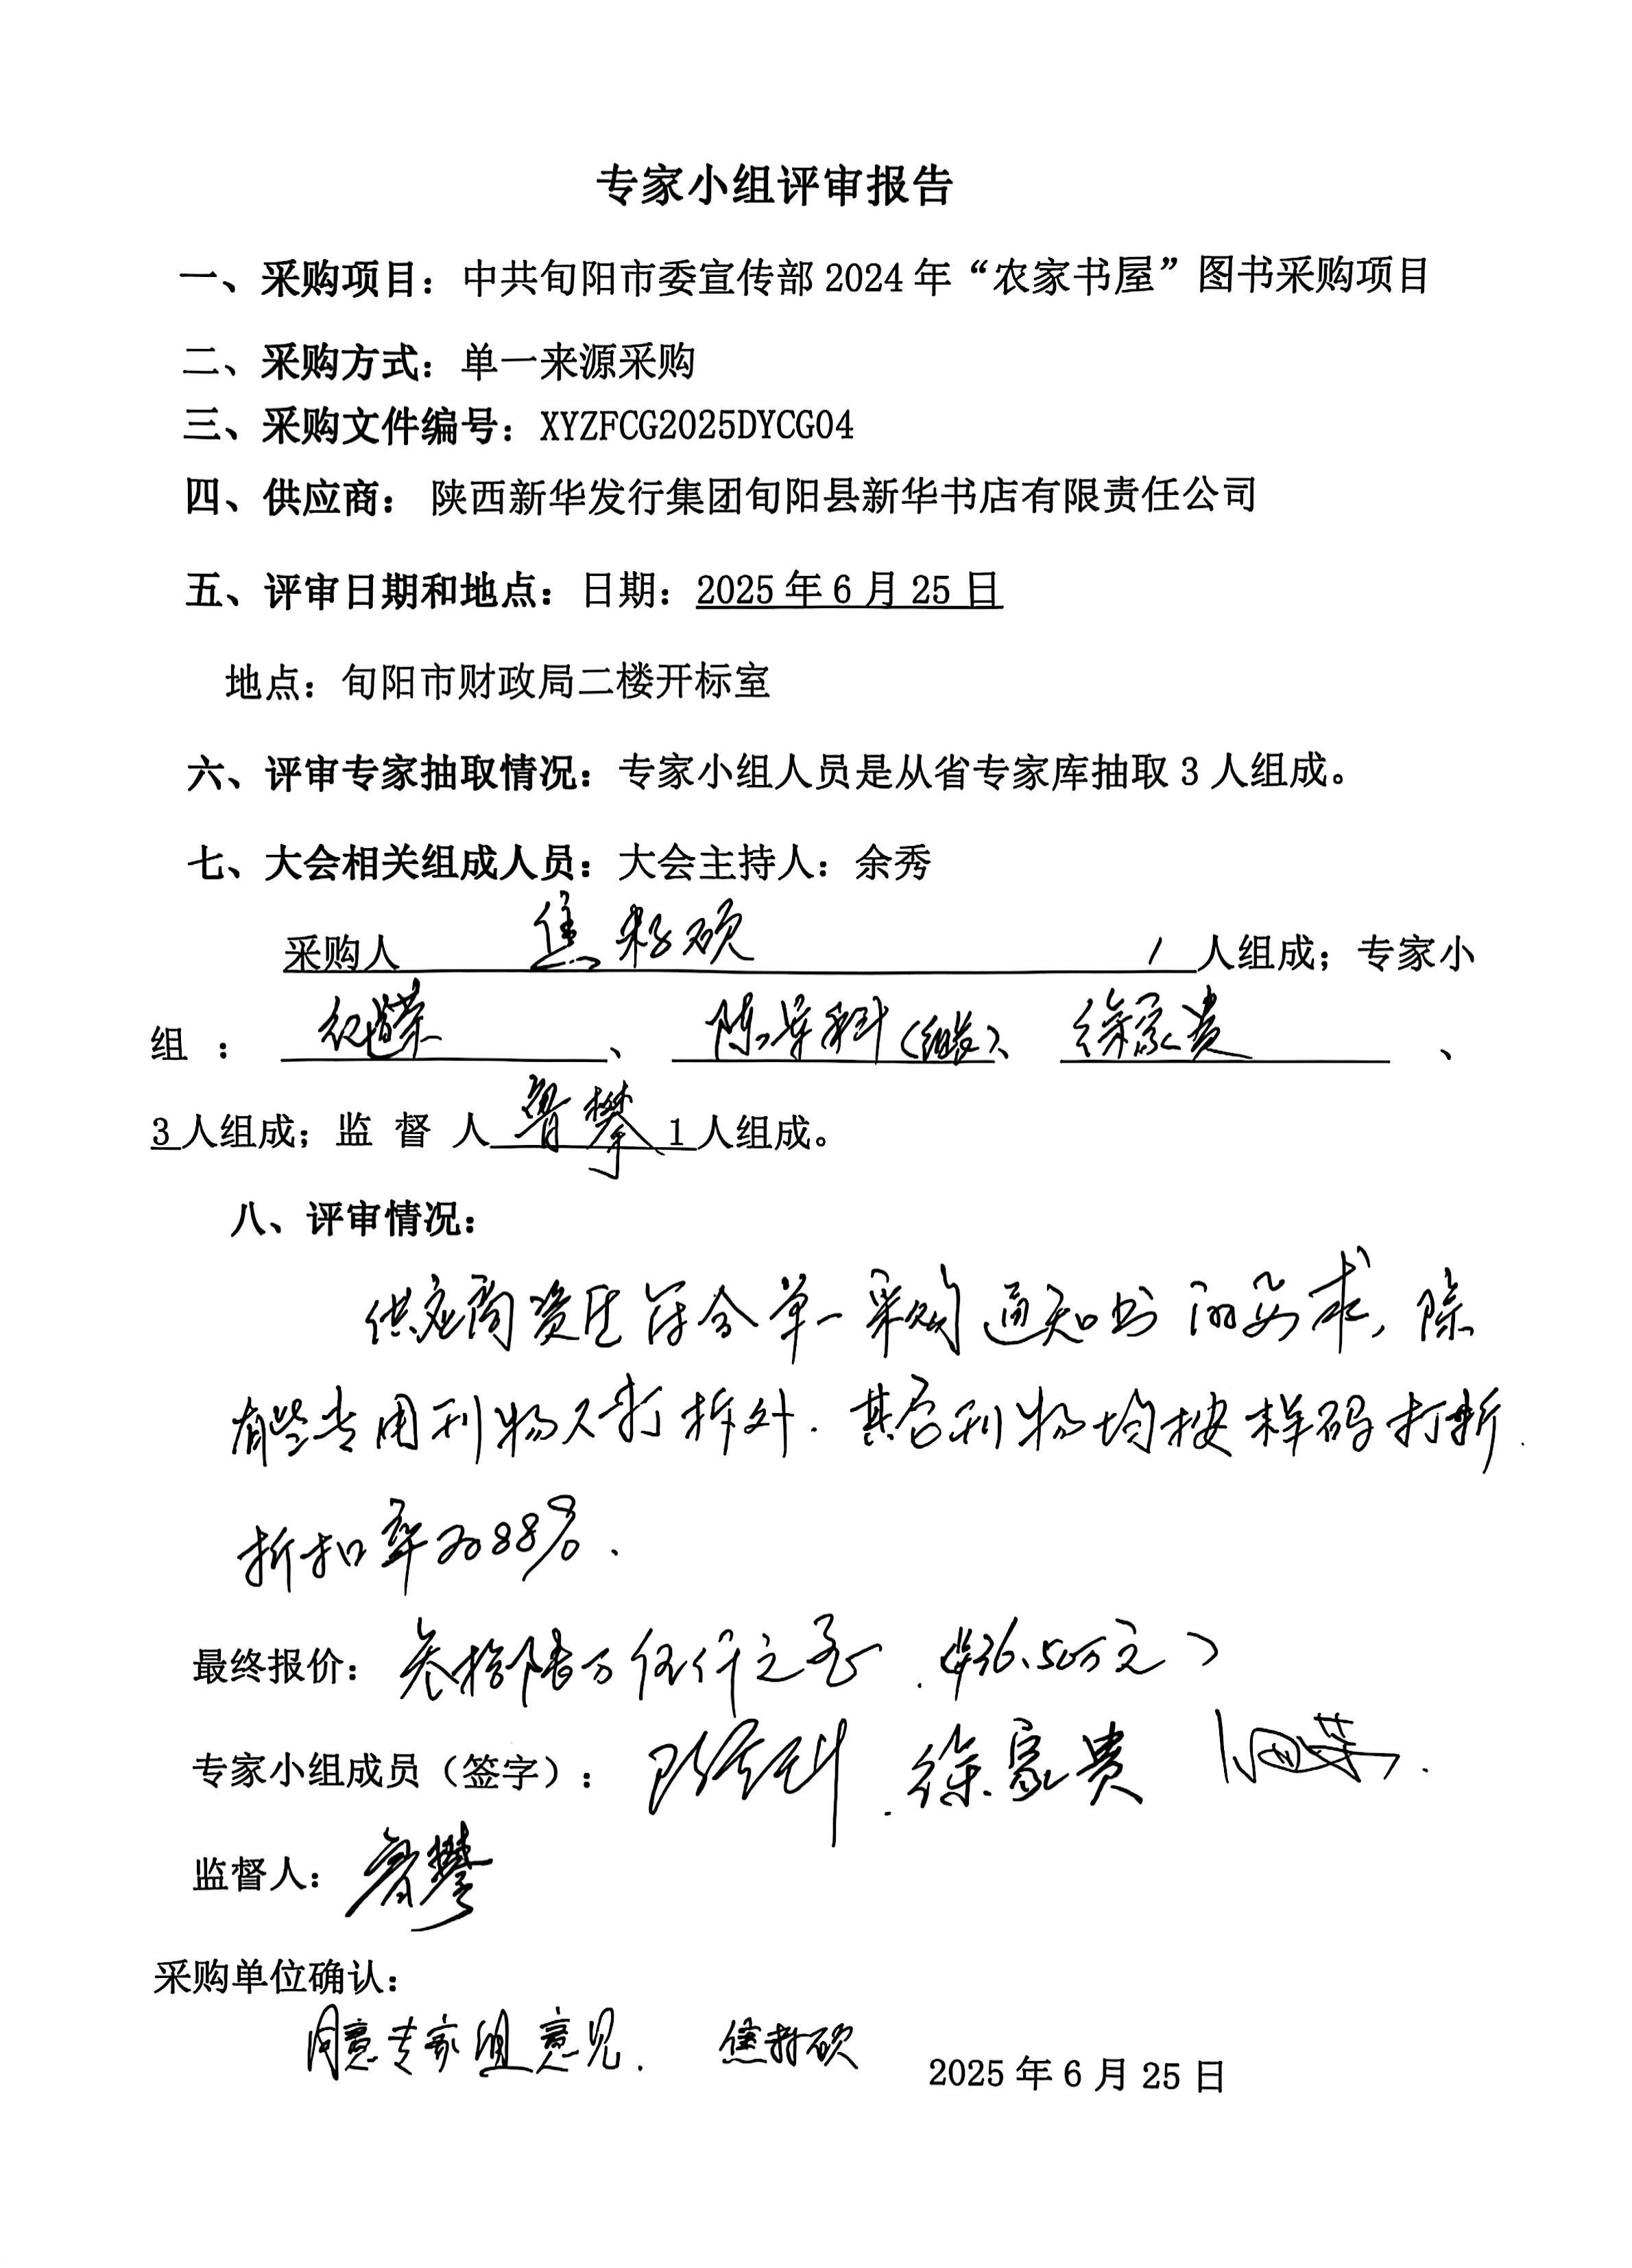 专家小组评审报告
一、采购项目：中共旬阳市委宣传部 2024 年“农家书屋”图书采购项目
二、采购方式：单一来源采购
三、采购文件编号：XYZFCG2025DYCG04
四、供应商： 陕西新华发行集团旬阳县新华书店有限责任公司
五、评审日期和地点：日期：2025 年 6 月 25 日
地点：旬阳市财政局二楼开标室
六、评审专家抽取情况：专家小组人员是从省专家库抽取 3 人组成。
七、大会相关组成人员：大会主持人：余秀
采购人 焦 硕 1 人组成；专家小
组 ： 、 陈 科（组长）、 徐家贵 、
3 人组成；监 督 人 鲁攀 1 人组成。
八、评审情况：
供应商资质符合单一采购通知书的要求，除
有些专用刊物不打折外．其它刊物均按样码打折．
折扣率为88%．
最终报价： 叁拾陆万伍仟元整．（¥36.50万元）
专家小组成员（签字）： 陈 科．徐家贵
监督人： 鲁攀
采购单位确认：
同意专家组意见． 焦 硕 2025 年 6 月 25 日